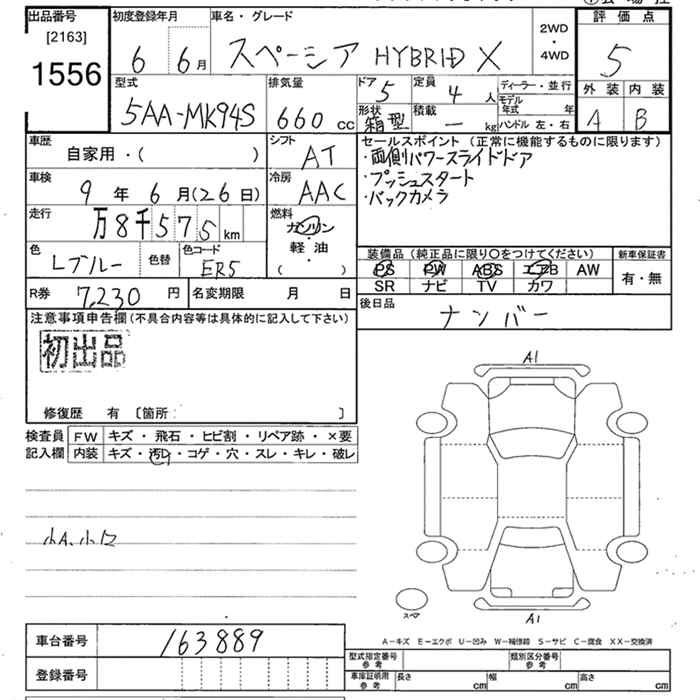 出品番号
[2163]
1556
初度登録年月
6 6月
車名・グレード
スペーシア HYBRID X
2WD
・
4WD
評価点
5
外装 内装
A B
型式
5AA-MK94S
排気量
660 cc
ドア
5
定員
4 人
ディーラー・並行
モデル年式 年
形状
箱型
積載
― kg
ハンドル 左・右
車歴
自家用・( )
シフト
AT
車検
9年 6月(26日)
冷房
AAC
走行
万8千575km
燃料
ガソリン
軽・油
・
( )
色
Lブルー
色替
色コード
ER5
セールスポイント (正常に機能するものに限ります)
・両側パワースライドドア
・プッシュスタート
・バックカメラ
装備品 (純正品に限り〇をつけてください)
PS PW ABS エアB AW
SR ナビ TV カワ
新車保証書
有・無
R券 7,230 円
名変期限 月 日
後日品
ナンバー
注意事項申告欄(不具合内容等は具体的に記入して下さい)
初出品
修復歴 有 〔箇所: 〕
検査員
記入欄
FW キズ・飛石・ヒビ割・リペア跡・×要
内装 キズ・汚レ・コゲ・穴・スレ・キレ・破レ
小A、小ロ
A1
スペア
A1
A−キズ E−エクボ U−凹み W−補修跡 S−サビ C−腐食 XX−交換済
車台番号
163889
登録番号
型式指定番号
参考
類別区分番号
参考
車庫証明用
参考
長さ cm
幅 cm
高さ cm